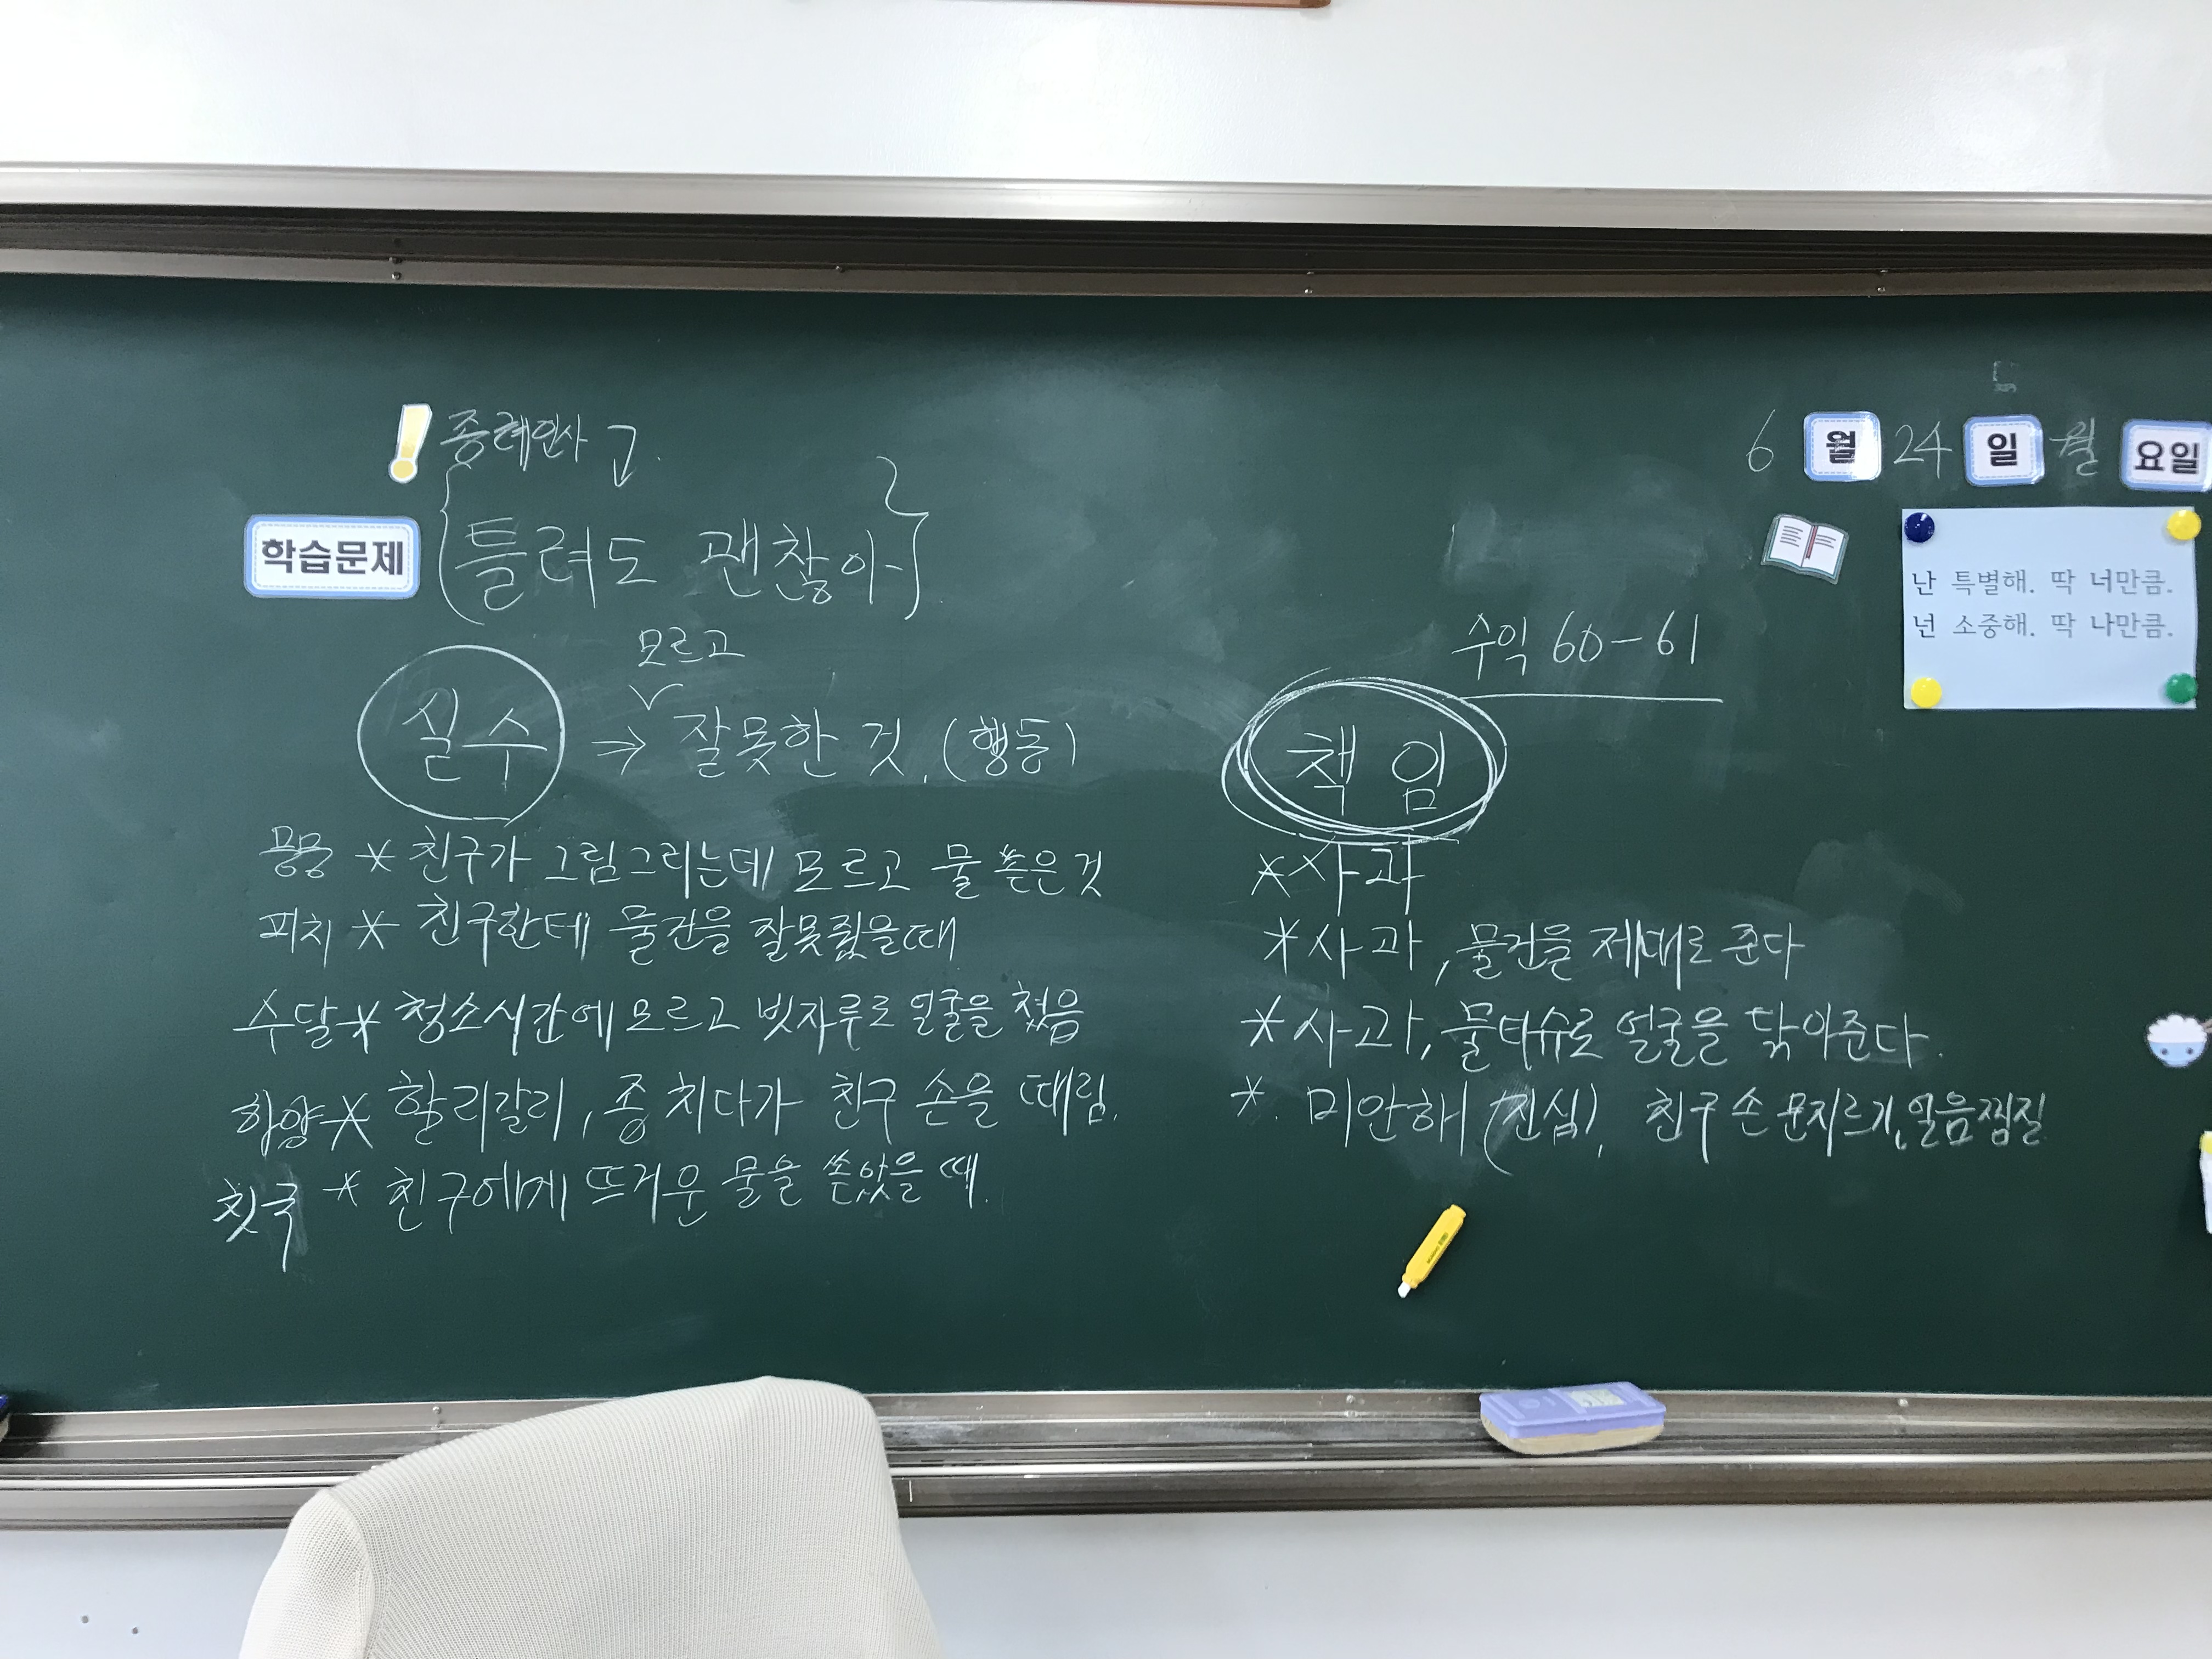 종례인사
6 월 24 일 월 요일
학습문제 {틀려도 괜찮아}
난 특별해. 딱 너만큼.
넌 소중해. 딱 나만큼.
수익 60-61
모르고
실수 → 잘못한 것. (행동)
책임
* 친구가 그림그리는데 모르고 물 쏟은것
* 사과
피치 * 친구한테 물건을 잘못줬을때
* 사과, 물건을 제대로 준다
수달 * 청소시간에 모르고 빗자루로 얼굴을 쳤음
* 사과, 물티슈로 얼굴을 닦아준다.
하양 * 할리갈리, 종 치다가 친구 손을 때림.
* 미안해 (진심), 친구 손 문지르기, 얼음찜질
칫국 * 친구에게 뜨거운 물을 쏟았을 때.